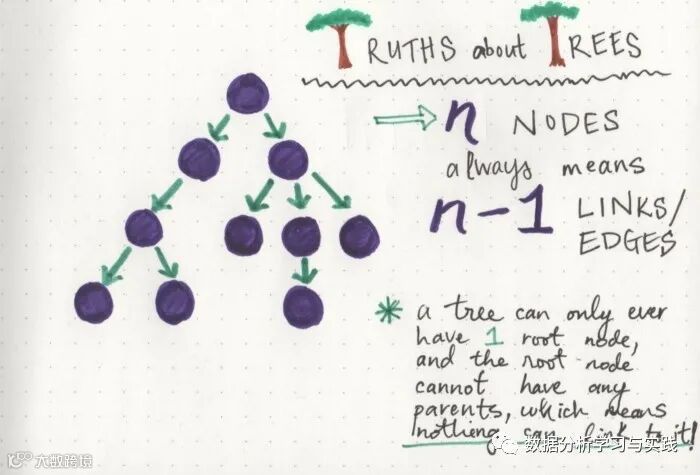 TRUTHS about TREES
n NODES
always means
n-1 LINKS/
EDGES
* a tree can only ever
have 1 root node,
and the root node
cannot have any
parents, which means
nothing can link to it!
数据分析学习与实践
大数跨境